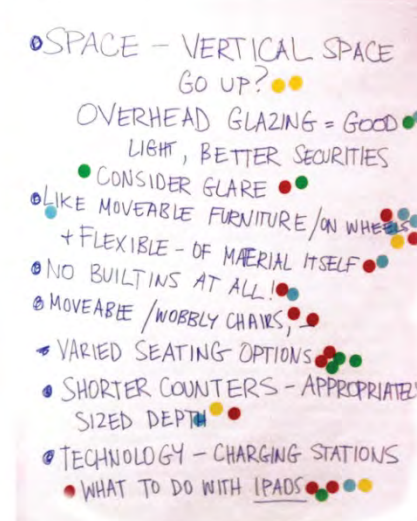 SPACE - VERTICAL SPACE
GO UP?
OVERHEAD GLAZING = GOOD
LIGHT, BETTER SECURITIES
CONSIDER GLARE
LIKE MOVEABLE FURNITURE/ON WHEELS
+ FLEXIBLE - OF MATERIAL ITSELF
NO BUILTINS AT ALL!
MOVEABLE/WOBBLY CHAIRS,
VARIED SEATING OPTIONS
SHORTER COUNTERS - APPROPRIATELY
SIZED DEPTH
TECHNOLOGY - CHARGING STATIONS
WHAT TO DO WITH IPADS